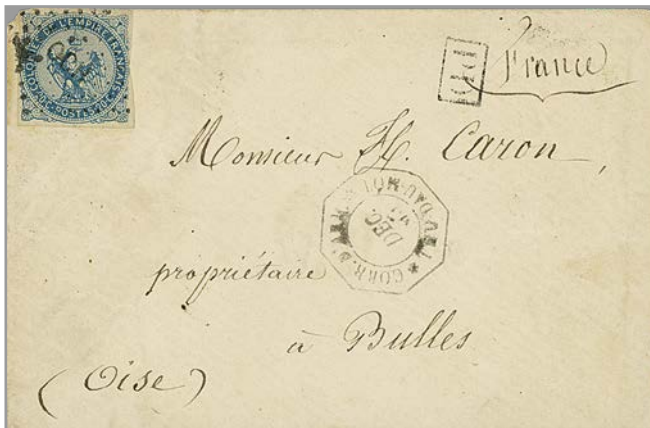 COLONIES DE L'EMPIRE FRANÇAIS
POSTES
PD
France
Monsieur H. Caron,
CORR. D'ARM.
DEC.
propriétaire
à Bulles
(Oise)